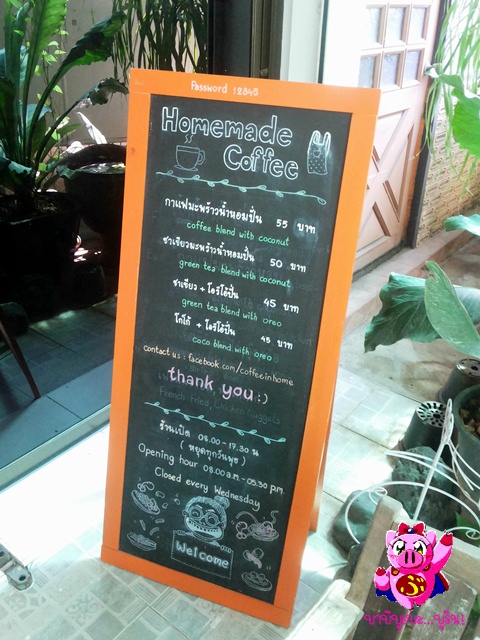 Password 12345
Homemade
Coffee
กาแฟมะพร้าวน้ำหอมปั่น 55 บาท
coffee blend with coconut
ชาเขียวมะพร้าวน้ำหอมปั่น 50 บาท
green tea blend with coconut
ชาเขียว + โอรีโอ้ปั่น 45 บาท
green tea blend with oreo
โกโก้ + โอรีโอ้ปั่น 45 บาท
coco blend with oreo
contact us : facebook.com/coffeeinhome
thank you :)
French Fried, Chicken Nuggets
ร้านเปิด 08.00 - 17.30 น
( หยุดทุกวันพุธ )
Opening hour 08.00 a.m. - 05.30 p.m.
Closed every Wednesday
Welcome